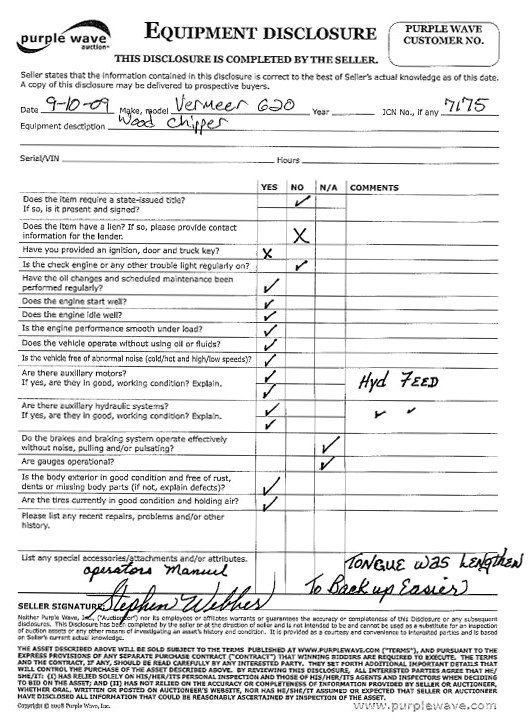 purple wave
auction
EQUIPMENT DISCLOSURE
PURPLE WAVE
CUSTOMER NO.
THIS DISCLOSURE IS COMPLETED BY THE SELLER.
Seller states that the information contained in this disclosure is correct to the best of Seller's actual knowledge as of this date.
A copy of this disclosure may be delivered to prospective buyers.
Date 9-10-09 Make, model Vermeer 620 Year ICN No., if any 7175
Equipment description Wood Chipper
Serial/VIN Hours
YES NO N/A COMMENTS
Does the item require a state-issued title? ✓
If so, is it present and signed?
Does the item have a lien? If so, please provide contact X
information for the lender.
Have you provided an ignition, door and truck key? X
Is the check engine or any other trouble light regularly on? ✓
Have the oil changes and scheduled maintenance been
performed regularly? ✓
Does the engine start well? ✓
Does the engine idle well? ✓
Is the engine performance smooth under load? ✓
Does the vehicle operate without using oil or fluids? ✓
Is the vehicle free of abnormal noise (cold/hot and high/low speeds)? ✓
Are there auxiliary motors? ✓ Hyd FEED
If yes, are they in good, working condition? Explain. ✓
Are there auxiliary hydraulic systems? ✓ ✓ ✓
If yes, are they in good, working condition? Explain. ✓
Do the brakes and braking system operate effectively ✓
without noise, pulling and/or pulsating?
Are gauges operational? ✓
Is the body exterior in good condition and free of rust,
dents or missing body parts (if not, explain defects)? ✓
Are the tires currently in good condition and holding air? ✓
Please list any recent repairs, problems and/or other
history.
List any special accessories/attachments and/or attributes. TONGUE WAS LENGTHEN
operators Manuel To Back up Easier
SELLER SIGNATURE: Stephen Webber
Neither Purple Wave, Inc., ("Auctioneer") nor its employees or affiliates warrants or guarantees the accuracy or completeness of this Disclosure or any subsequent
disclosures. This Disclosure has been completed by the seller or at the direction of seller and is not intended to be and cannot be used as a substitute for an inspection
of auction assets or any other means of investigating an asset's history and condition. It is provided as a courtesy and convenience to interested parties and is based
on Seller's current actual knowledge.
THE ASSET DESCRIBED ABOVE WILL BE SOLD SUBJECT TO THE TERMS PUBLISHED AT WWW.PURPLEWAVE.COM ("TERMS"), AND PURSUANT TO THE
EXPRESS PROVISIONS OF A SEPARATE PURCHASE CONTRACT ("CONTRACT") THAT WINNING BIDDERS ARE REQUIRED TO EXECUTE. THE TERMS
AND THE CONTRACT, IF ANY, SHOULD BE READ CAREFULLY BY ANY INTERESTED PARTY. THEY SET FORTH ADDITIONAL IMPORTANT DETAILS THAT
WILL CONTROL THE PURCHASE OF THE ASSET DESCRIBED ABOVE. BY REVIEWING THIS DISCLOSURE, ALL INTERESTED PARTIES AGREE THAT HE/
SHE/IT: (I) HAS RELIED SOLELY ON HIS/HER/ITS PERSONAL INSPECTION AND THOSE OF HIS/HER/ITS AGENTS AND INSPECTORS WHEN DECIDING
TO BID ON THE ASSET; AND (II) HAS NOT RELIED ON THE ACCURACY OR COMPLETENESS OF INFORMATION PROVIDED BY SELLER OR AUCTIONEER,
WHETHER ORAL, WRITTEN OR POSTED ON AUCTIONEER'S WEBSITE, NOR HAS HE/SHE/IT ASSUMED OR EXPECTED THAT SELLER OR AUCTIONEER
HAVE DISCLOSED ALL INFORMATION THAT COULD BE REASONABLY ASCERTAINED BY INSPECTION OF THE ASSET.
Copyright © 2008 Purple Wave, Inc.
www.purplewave.com